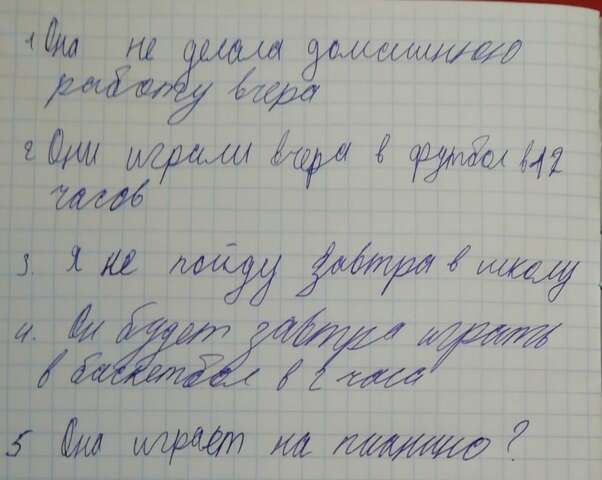 1 Она не делала домашнюю
работу вчера
2 Они играли вчера в футбол в 12
часов
3. Я не пойду завтра в школу
4. Он будет завтра играть
в баскетбол в 2 часа
5 Она играет на пианино?